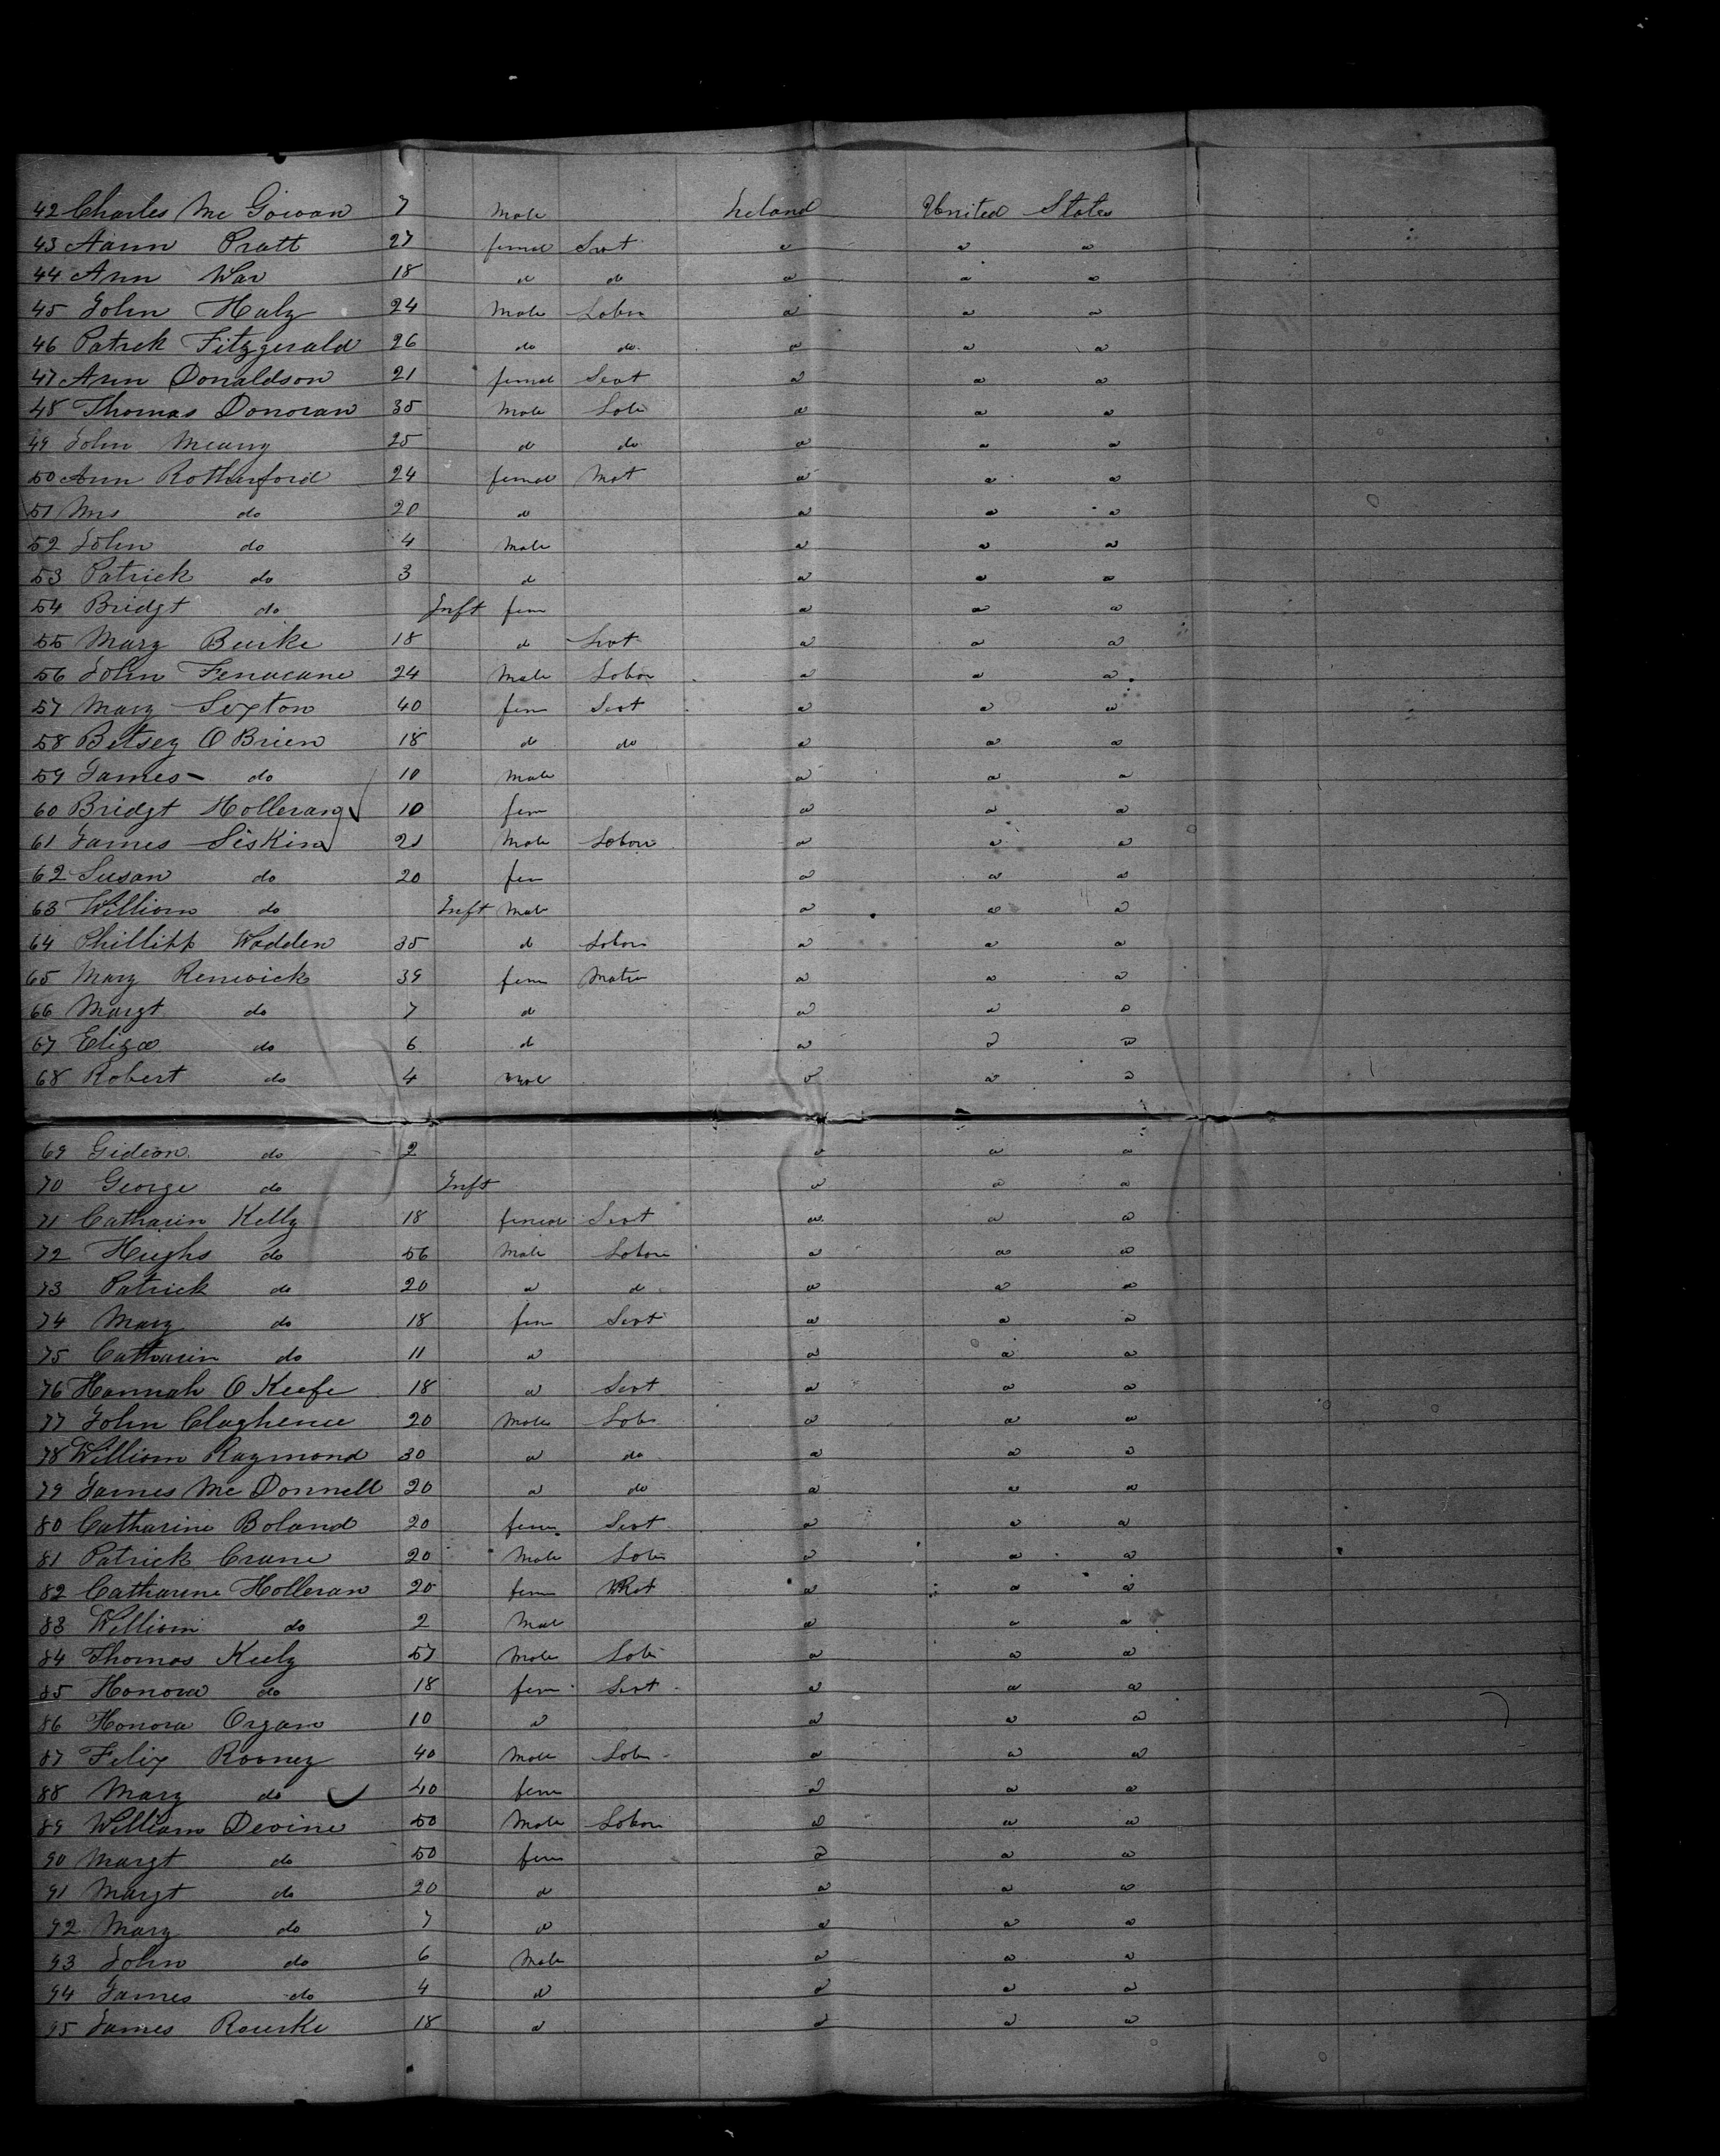 42 Charles Mc Gowan 7 Male Ireland United States
43 Aann Pratt 27 femal Servt " " "
44 Ann War 18 d do " " "
45 John Haly 24 Male Labor " " "
46 Patrck Fitzgerald 26 do do " " "
47 Ann Donaldson 21 femal Servt " " "
48 Thomas Donovan 35 Male Labr " " "
49 John Meany 25 d do " " "
50 Ann Rotherford 24 femal Mat " " "
51 Mrs do 20 d " " "
52 John do 4 Male " " "
53 Patrick do 3 d " " "
54 Bridgt do Inft fem " " "
55 Mary Burke 18 d Servt " " "
56 John Fenucane 24 Male Labor " " "
57 Mary Sexton 40 fem Servt " " "
58 Betsey O Brien 18 d do " " "
59 James do 10 Male " " "
60 Bridgt Holleran 10 fem " " "
61 James Siskin 21 Male Labor " " "
62 Susan do 20 fem " " "
63 William do Inft Male " " "
64 Phillipp Wadden 35 d Labor " " "
65 Mary Renwick 39 fem Matr " " "
66 Margt do 7 d " " "
67 Eliza do 6 d " " "
68 Robert do 4 Male " " "
69 Gideon do 2 " " "
70 George do Inft " " "
71 Catharin Kelly 18 femal Servt " " "
72 Hughs do 56 Male Labor " " "
73 Patrick do 20 " d " " "
74 Mary do 18 fem Servt " " "
75 Catharin do 11 " " " "
76 Hannah O Keefe 18 " Servt " " "
77 John Claghence 20 Male Labr " " "
78 William Raymond 30 " do " " "
79 James Mc Donnell 20 " do " " "
80 Catharine Boland 20 fem Servt " " "
81 Patrick Crane 20 Male Labr " " "
82 Catharine Holleran 20 fem " " "
83 William do 2 Male " " "
84 Thomas Kiely 57 Male Labr " " "
85 Honora do 18 fem Servt " " "
86 Honora Organ 10 " " " "
87 Felix Rooney 40 Male Labr " " "
88 Mary do 40 fem " " "
89 William Devine 50 Male Labor " " "
90 Margt do 50 fem " " "
91 Margt do 20 d " " "
92 Mary do 7 " " " "
93 John do 6 Male " " "
94 James do 4 " " " "
95 James Rourke 18 " " " "